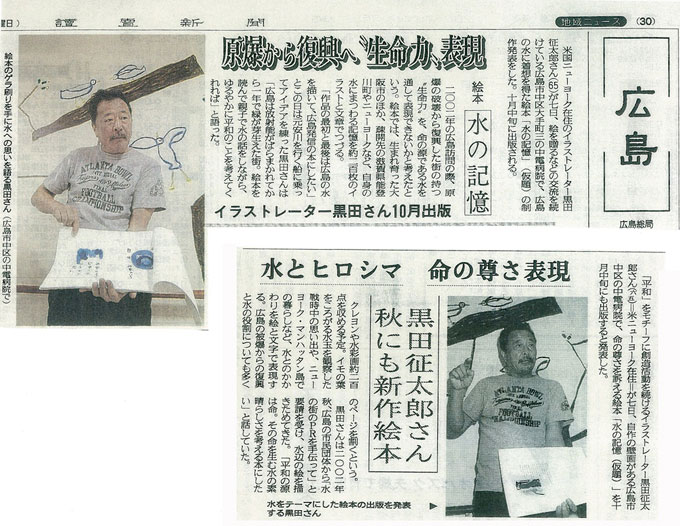 讀賣新聞
地域ニュース
(30)
広島
広島総局
原爆から復興へ〝生命力〟表現
絵本
水の記憶
イラストレーター黒田さん10月出版
米国ニューヨーク在住のイラストレーター黒田
征太郎さん(65)が七日、絵を贈るなどの交流を続
けている広島市中区大手町三の中電病院で、広島
の水に着想を得た絵本「水の記憶」(仮題)の制
作発表をした。十月中旬に出版される。
二〇〇二年の広島訪問の際、原
爆の破壊から復興した街の持つ
〝生命力〟を、命の源である水を
通して表現できないかと考えたと
いう。絵本では、生まれ育った大
阪市のほか、疎開先の滋賀県能登
川町やニューヨークなど、自身の
水にまつわる記憶を約二百枚のイ
ラストと文章でつづる。
「作品の最初と最後は広島の水
を描いて、広島発信の本にしたい」
とこの日は元安川を行く船に乗っ
てアイデアを練った黒田さんは
「広島は放射能がばらまかれてか
ら一年で緑が芽生えた街。絵本を
読んで親子で水の話をしながら、
ゆるやかに平和のことを考えてく
れれば」と語った。
絵本のゲラ刷りを手に水への思いを語る黒田さん(広島市中区の中電病院で)
水とヒロシマ 命の尊さ表現
黒田征太郎さん
秋にも新作絵本
「平和」をモチーフに創造活動を続けるイラストレーター黒田征太
郎さん(65)=米ニューヨーク在住=が七日、自作の壁画がある広島市
中区の中電病院で、命の尊さを訴える絵本「水の記憶(仮題)」を十
月中旬にも出版すると発表した。
クレヨンや水彩画約二百
点を収める予定。イモの葉
をころがる水玉を観察した
戦時中の思い出や、ニュー
ヨーク・マンハッタン島で
の暮らしなど、水とのかか
わりを絵と文字で表現す
る。広島の被爆からの復興
と水の役割についても多く
のページを割くという。
黒田さんは二〇〇二年
秋、広島の市民団体から「水
の街のPRを手伝って」と
要請を受け、水辺の絵を描
きためてきた。「平和の源
は命。その命を生む水の素
晴らしさを考える本にした
い」と話していた。
水をテーマにした絵本の出版を発表
する黒田さん